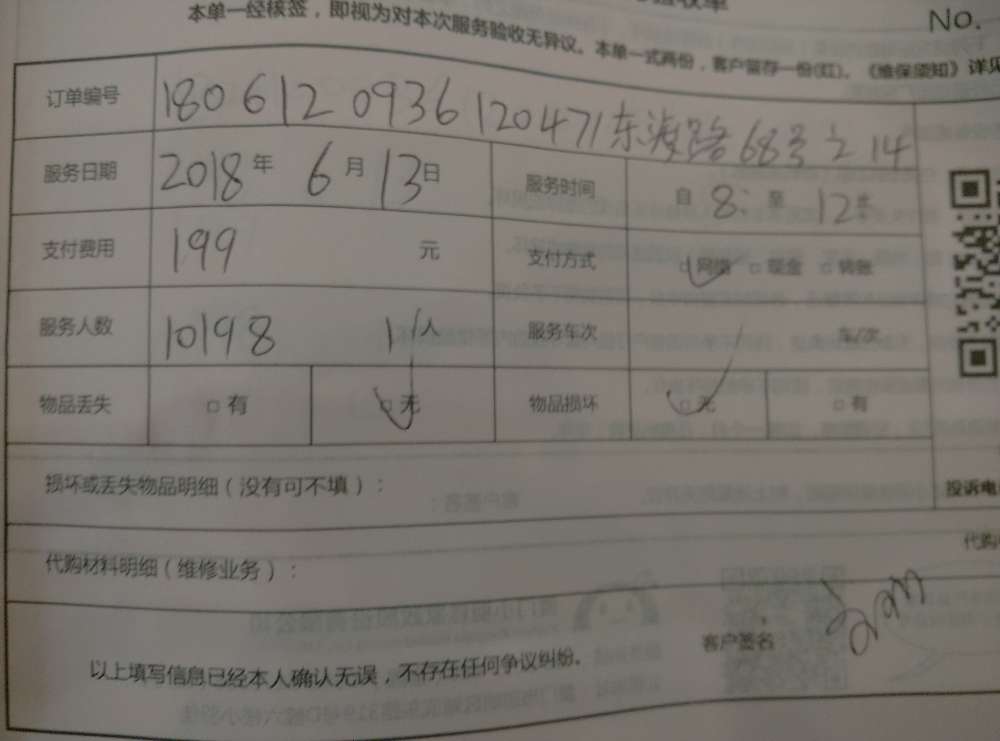 验收单
No.
本单一经核签，即视为对本次服务验收无异议。本单一式两份，客户留存一份(红)。《维保须知》详见
订单编号 180612093612047 1东渡路68号之14
服务日期 2018年 6月 13日 服务时间 自 8: 至 12止
支付费用 199 元 支付方式 □网络 □现金 □转账
服务人数 10198 1人 服务车次 车/次
物品丢失 □有 □无 物品损坏 □无 □有
损坏或丢失物品明细（没有可不填）： 投诉电
代购材料明细（维修业务）： 代购
客户签名 Sam
以上填写信息已经本人确认无误，不存在任何争议纠纷。